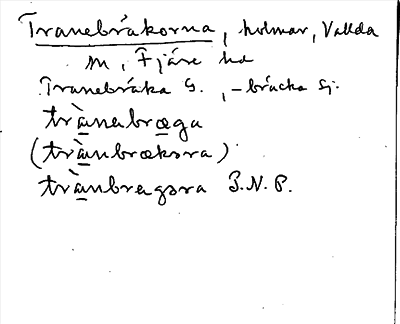 Tranebråkorna, holmar, Vallda
sn, Fjäre hd
Tranebråka G., -bråcka Sj.
trànabræga
(trànbrækora)
trànbragora P.N.P.